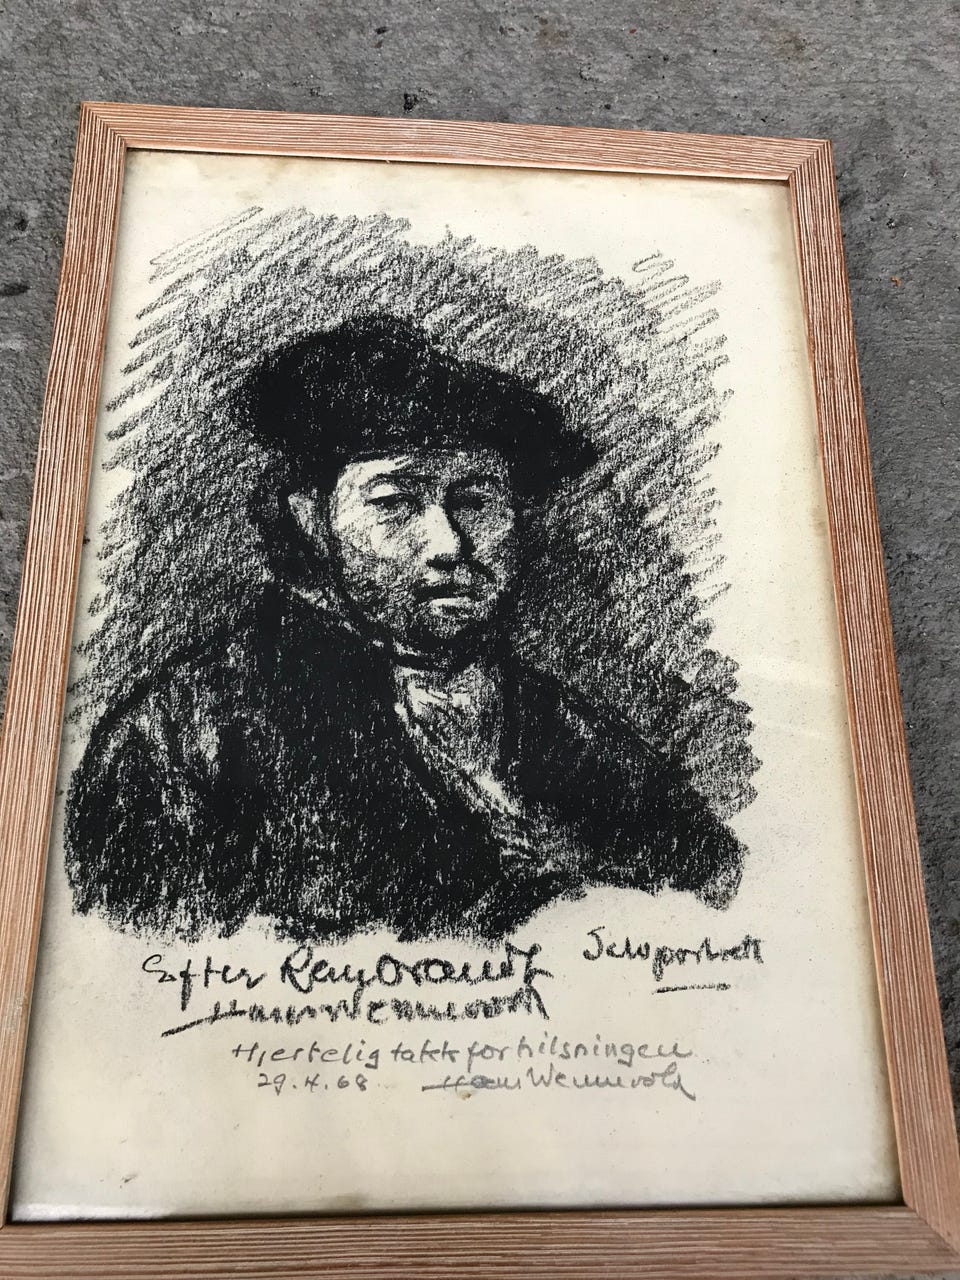 Efter Rembrandt Selvportrett
Hans Wennevold
Hjertelig takk for hilsningen
29.4.68 Hans Wennevold